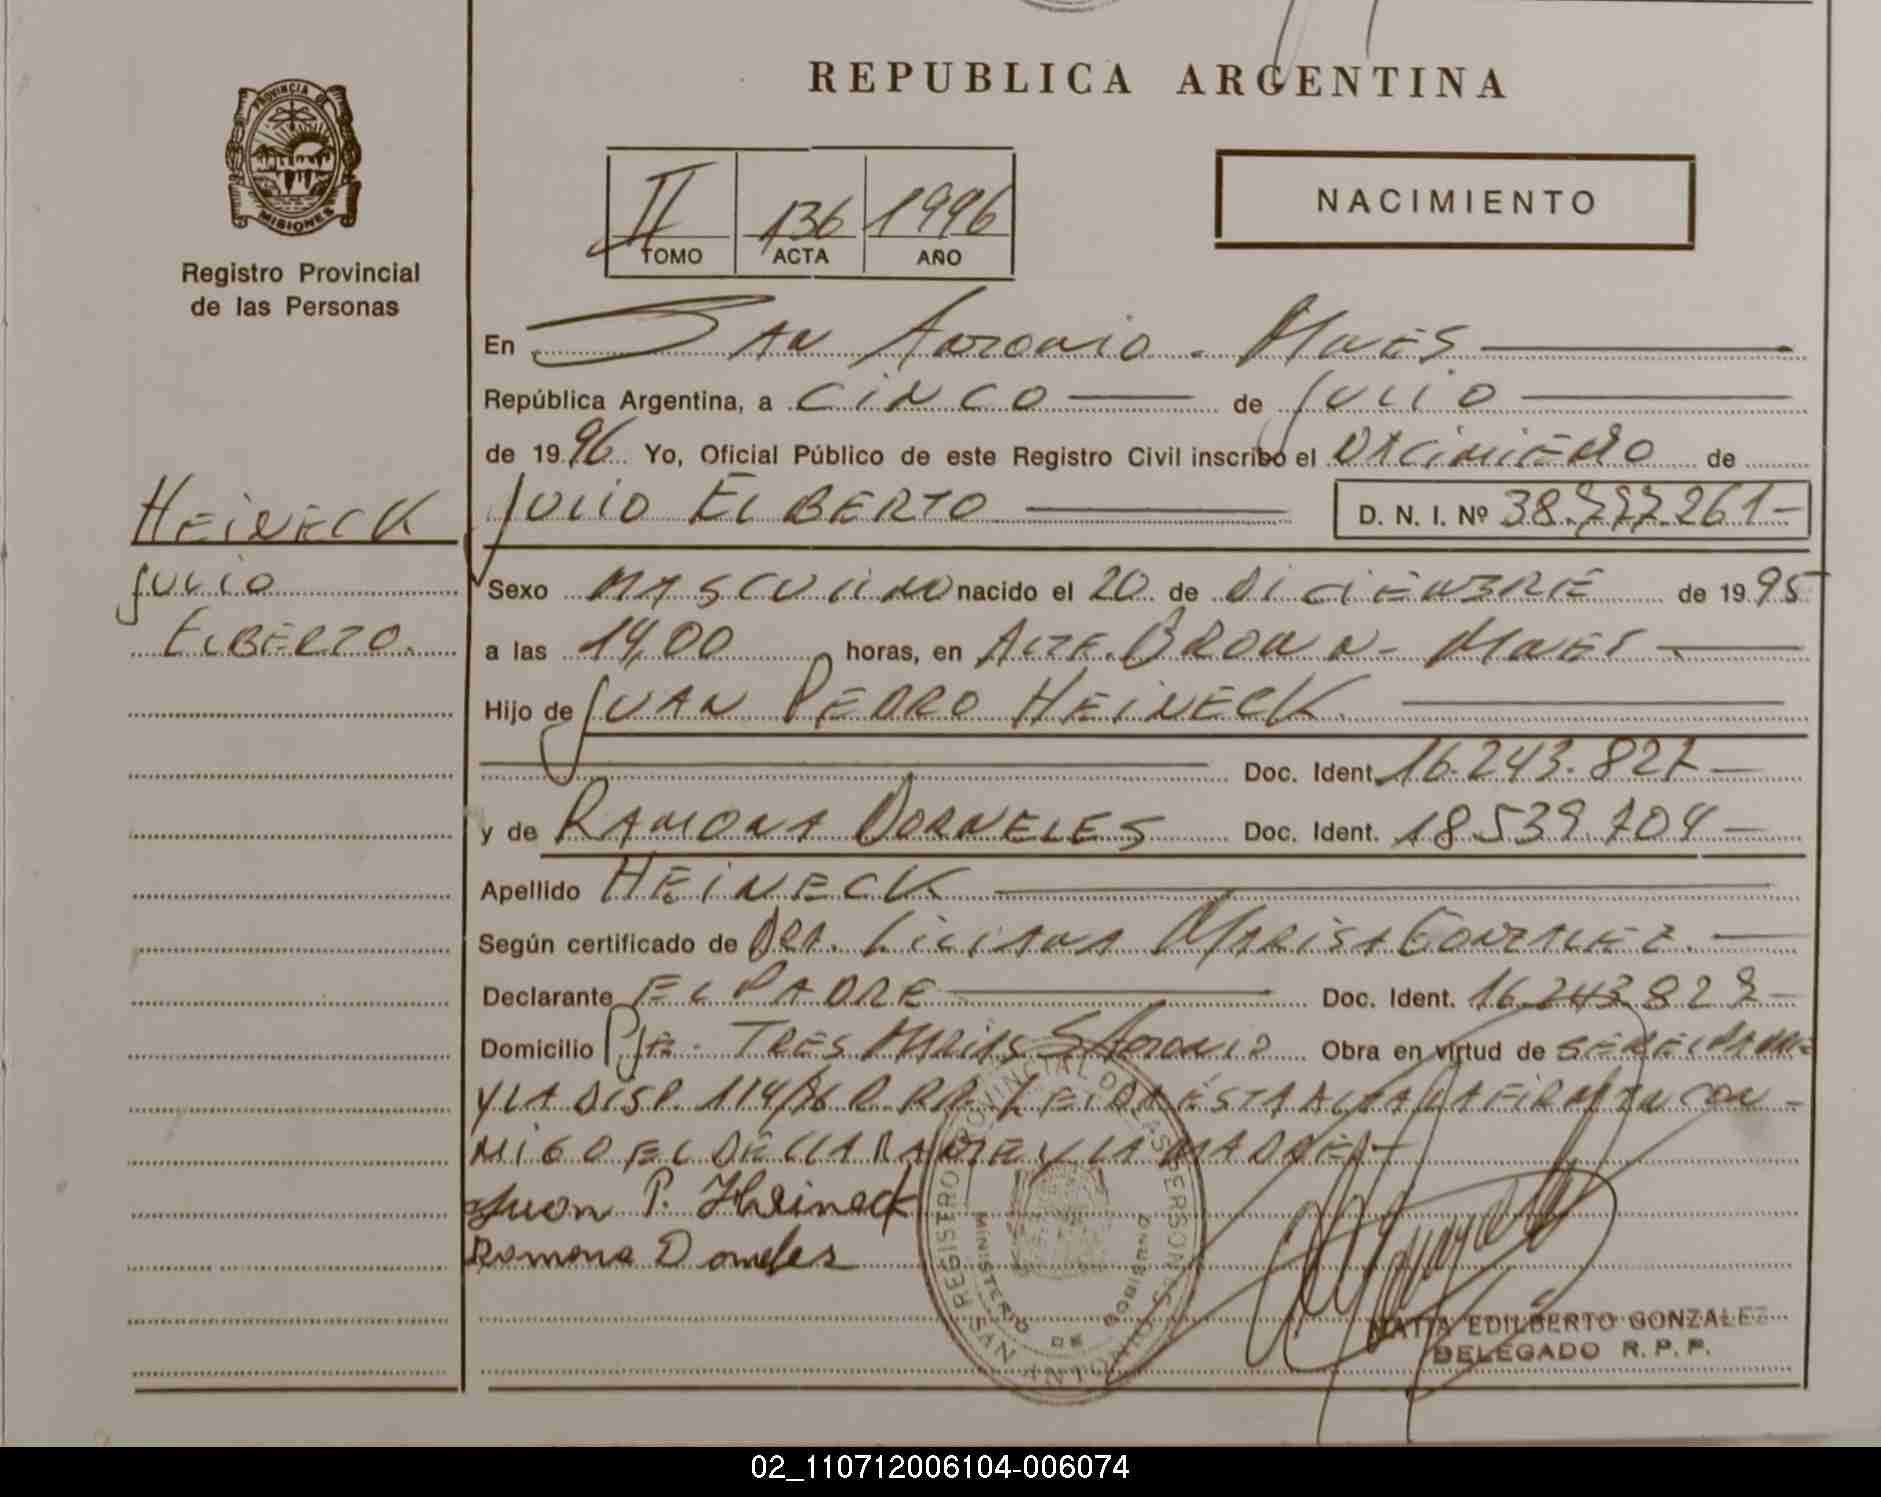 REPUBLICA ARGENTINA
PROVINCIA DE
MISIONES
Registro Provincial
de las Personas
II TOMO 136 ACTA 1996 AÑO
NACIMIENTO
En San Antonio - Mnes
República Argentina, a cinco de Julio
de 1996 Yo, Oficial Público de este Registro Civil inscribo el nacimiento de
Julio Elberto D. N. I. Nº 38.777.261-
Heineck
Julio
Elberto.
Sexo Masculino nacido el 20 de Diciembre de 1995
a las 14,00 horas, en Alte. Brown - Mnes
Hijo de Juan Pedro Heineck
Doc. Ident. 16.243.827-
y de Ramona Dorneles Doc. Ident. 18.539.704-
Apellido Heineck
Según certificado de Dra. Liliana Marisa Gonzalez.
Declarante El Padre Doc. Ident. 16.243.827-
Domicilio Pje. Tres Marias S Antonio Obra en virtud de
y la Disp. 114/86 D. R.P. Leida esta acta la firman con-
migo el declarante y la madre-
Juan P. Heineck
Ramona Dorneles
REGISTRO PROVINCIAL DE LAS PERSONAS
MINISTERIO DE GOBIERNO
SAN ANTONIO
EDILBERTO GONZALEZ
DELEGADO R. P. P.
02_110712006104-006074